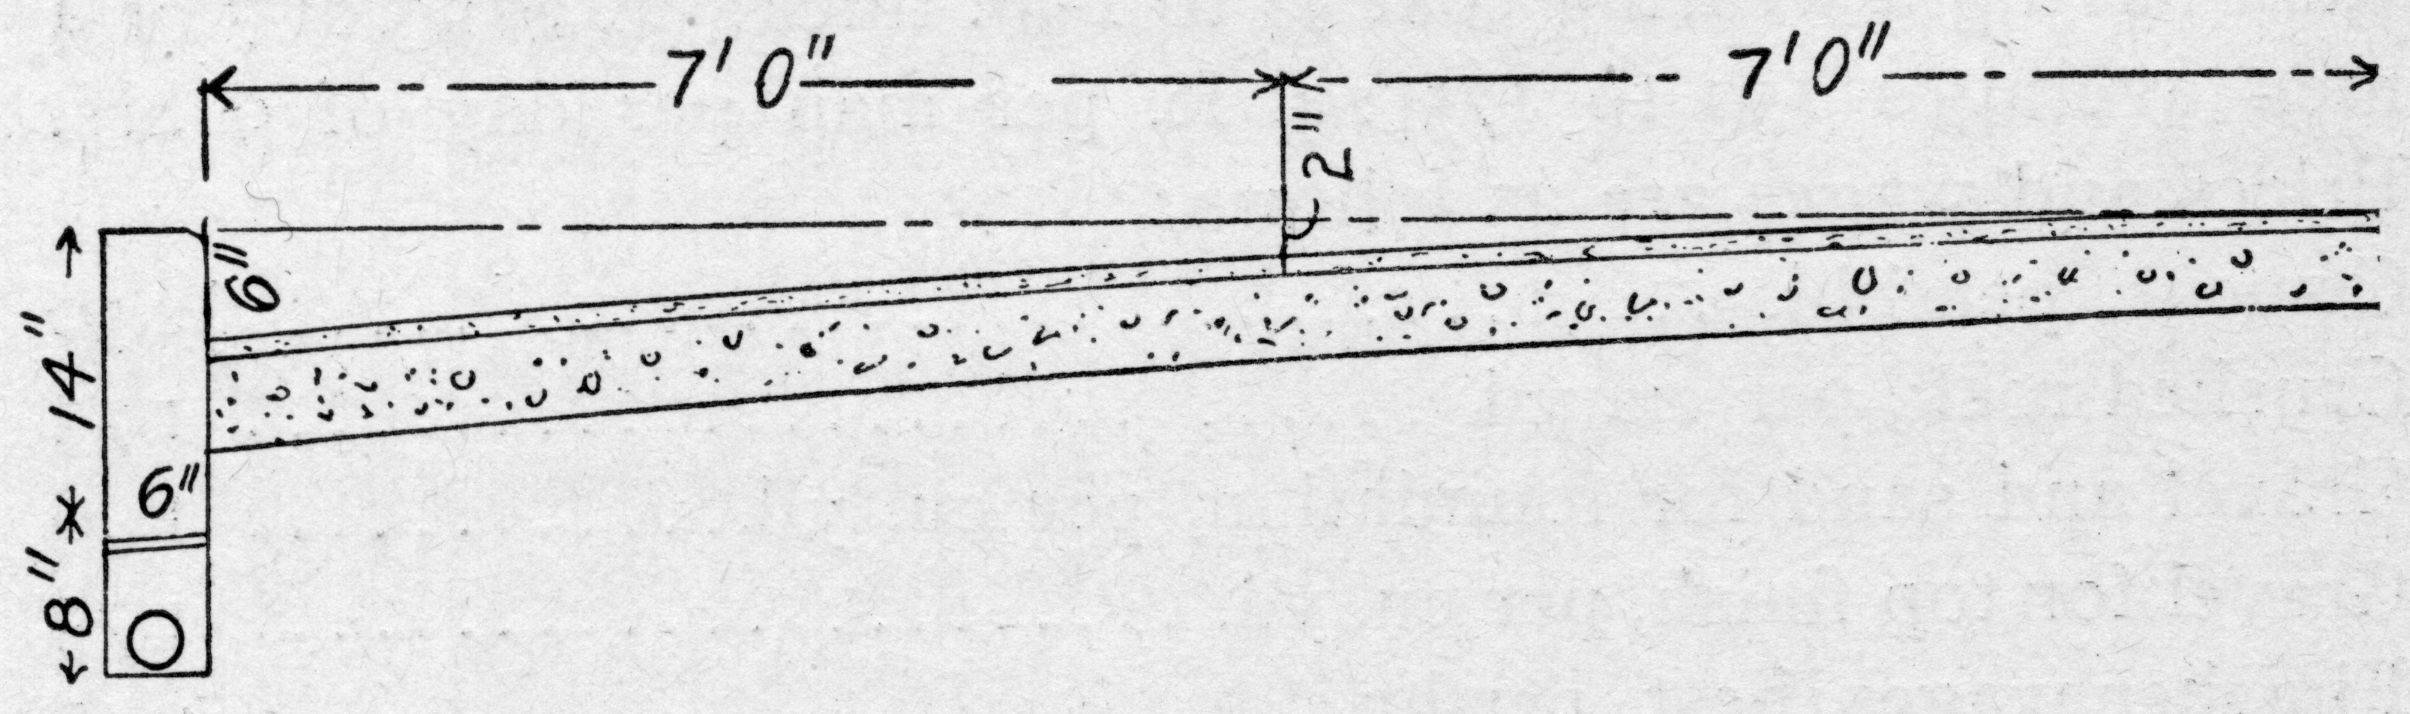 7' 0"
7' 0"
2"
6"
14"
6"
8"